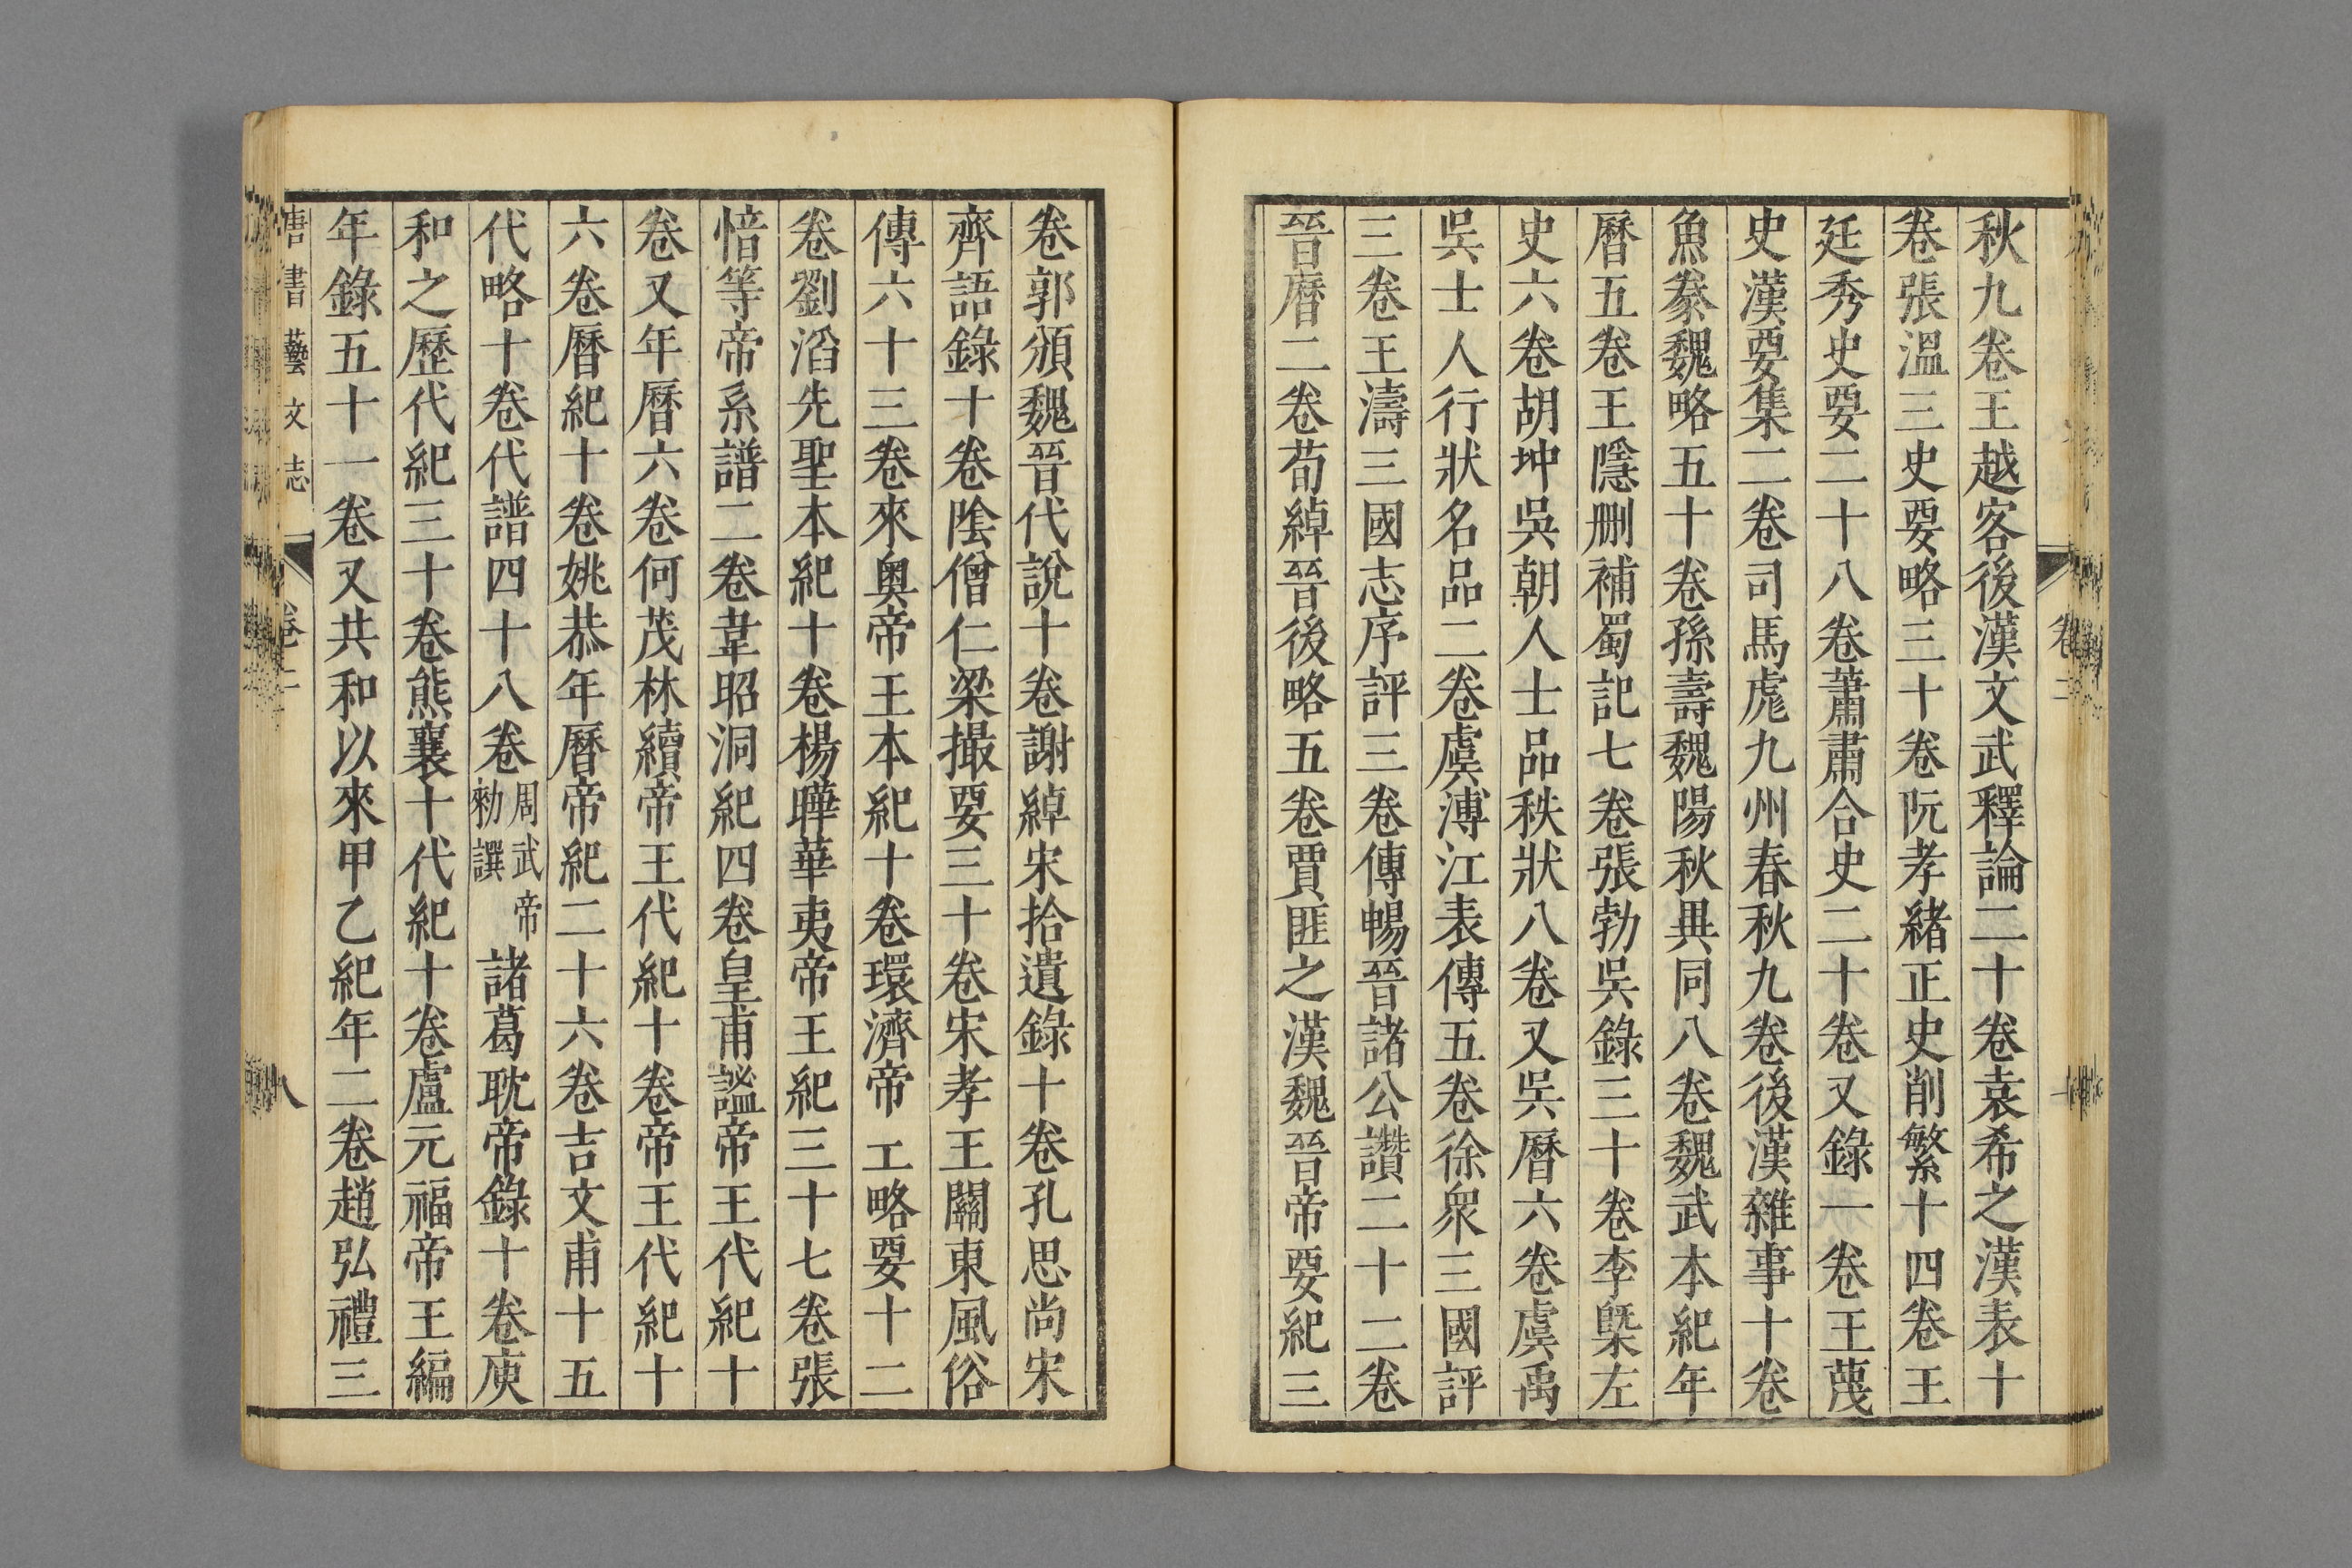 秋九卷王越客後漢文武釋論二十卷袁希之漢表十
卷張溫三史要略三十卷阮孝緒正史削繁十四卷王
廷秀史要二十八卷蕭肅合史二十卷又錄一卷王蔑
史漢要集二卷司馬彪九州春秋九卷後漢雜事十卷
魚豢魏略五十卷孫壽魏陽秋異同八卷魏武本紀年
曆五卷王隱刪補蜀記七卷張勃吳錄三十卷李槩左
史六卷胡坤吳朝人士品秩狀八卷又吳曆六卷虞禹
吳士人行狀名品二卷虞溥江表傳五卷徐衆三國評
三卷王濤三國志序評三卷傳暢晉諸公讚二十二卷
晉曆二卷荀綽晉後略五卷賈匪之漢魏晉帝要紀三
卷郭頒魏晉代說十卷謝綽宋拾遺錄十卷孔思尚宋
齊語錄十卷陰僧仁梁撮要三十卷宋孝王關東風俗
傳六十三卷來奧帝王本紀十卷環濟帝王略要十二
卷劉滔先聖本紀十卷楊曄華夷帝王紀三十七卷張
愔等帝系譜二卷韋昭洞紀四卷皇甫謐帝王代紀十
卷又年曆六卷何茂林續帝王代紀十卷帝王代紀十
六卷曆紀十卷姚恭年曆帝紀二十六卷吉文甫十五
代略十卷代譜四十八卷周武帝勑譔諸葛耽帝錄十卷庾
和之歷代紀三十卷熊襄十代紀十卷盧元福帝王編
年錄五十一卷又共和以來甲乙紀年二卷趙弘禮三
唐書藝文志 卷二 八